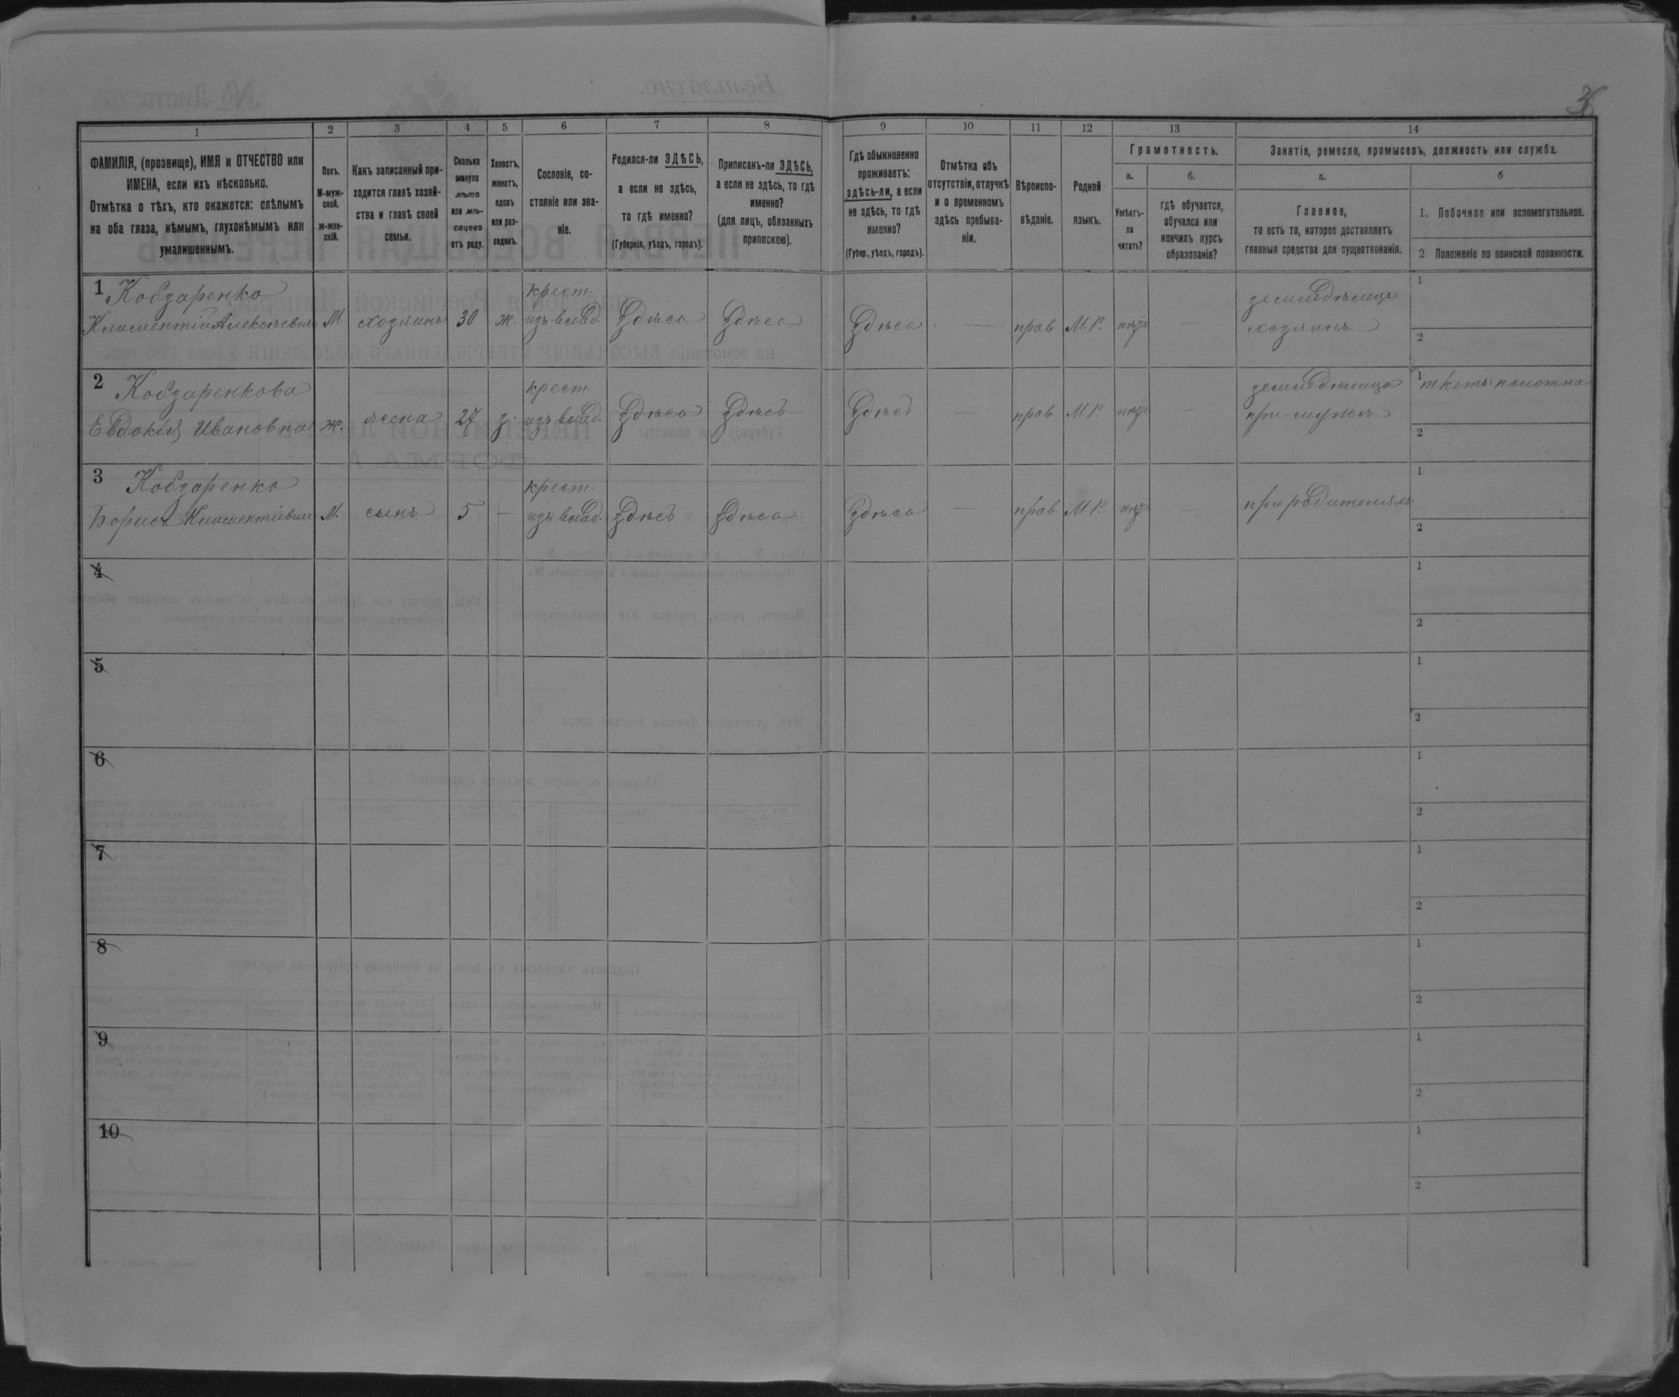 3
1 2 3 4 5 6 7 8 9 10 11 12 13 14
ФАМИЛІЯ, (прозвище), ИМЯ и ОТЧЕСТВО или
ИМЕНА, если ихъ нѣсколько.
Отмѣтка о тѣхъ, кто окажется: слѣпымъ
на оба глаза, нѣмымъ, глухонѣмымъ или
умалишеннымъ.
Полъ.
М-муж-
ской.
Ж-жен-
скій.
Какъ записанный при-
ходится главѣ хозяй-
ства и главѣ своей
семьи.
Сколько
минуло
лѣтъ
или мѣ-
сяцевъ
отъ роду.
Холостъ,
женатъ,
вдовъ
или раз-
веденъ.
Сословіе, со-
стояніе или зва-
ніе.
Родился-ли ЗДѢСЬ,
а если не здѣсь,
то гдѣ именно?
(Губернія, уѣздъ, городъ).
Приписанъ-ли ЗДѢСЬ,
а если не здѣсь, то гдѣ
именно?
(для лицъ, обязанныхъ
припискою).
Гдѣ обыкновенно
проживаетъ:
здѣсь-ли, а если
не здѣсь, то гдѣ
именно?
(Губер., уѣздъ, городъ).
Отмѣтка объ
отсутствіи, отлучкѣ
и о временномъ
здѣсь пребыва-
ніи.
Вѣроиспо-
вѣданіе.
Родной
языкъ.
Грамотность.
а.
Умѣетъ-
ли
читать?
б.
гдѣ обучается,
обучался или
кончилъ курсъ
образованія?
Занятіе, ремесло, промыселъ, должность или служба.
а.
Главное,
то есть то, которое доставляетъ
главныя средства для существованія.
б
1. Побочное или вспомогательное.
2 Положеніе по воинской повинности.
1 Кобзаренко
Климентій Алексѣевичъ М. хозяинъ 30 ж. крест. изъ влад. Здѣсь Здѣсь Здѣсь — прав М.Р. нѣтъ — земледѣлецъ хозяинъ
1
2
2 Кобзаренкова
Евдокія Ивановна ж. жена 27 з. крест. изъ влад. Здѣсь Здѣсь Здѣсь — прав М.Р. нѣтъ — земледѣлица при мужѣ
1 ткетъ полотна
2
3 Кобзаренко
Борисъ Климентіевичъ М. сынъ 5 — крест. изъ влад. Здѣсь Здѣсь Здѣсь — прав М.Р. нѣтъ — при родителяхъ
1
2
4
1
2
5
1
2
6
1
2
7
1
2
8
1
2
9
1
2
10
1
2